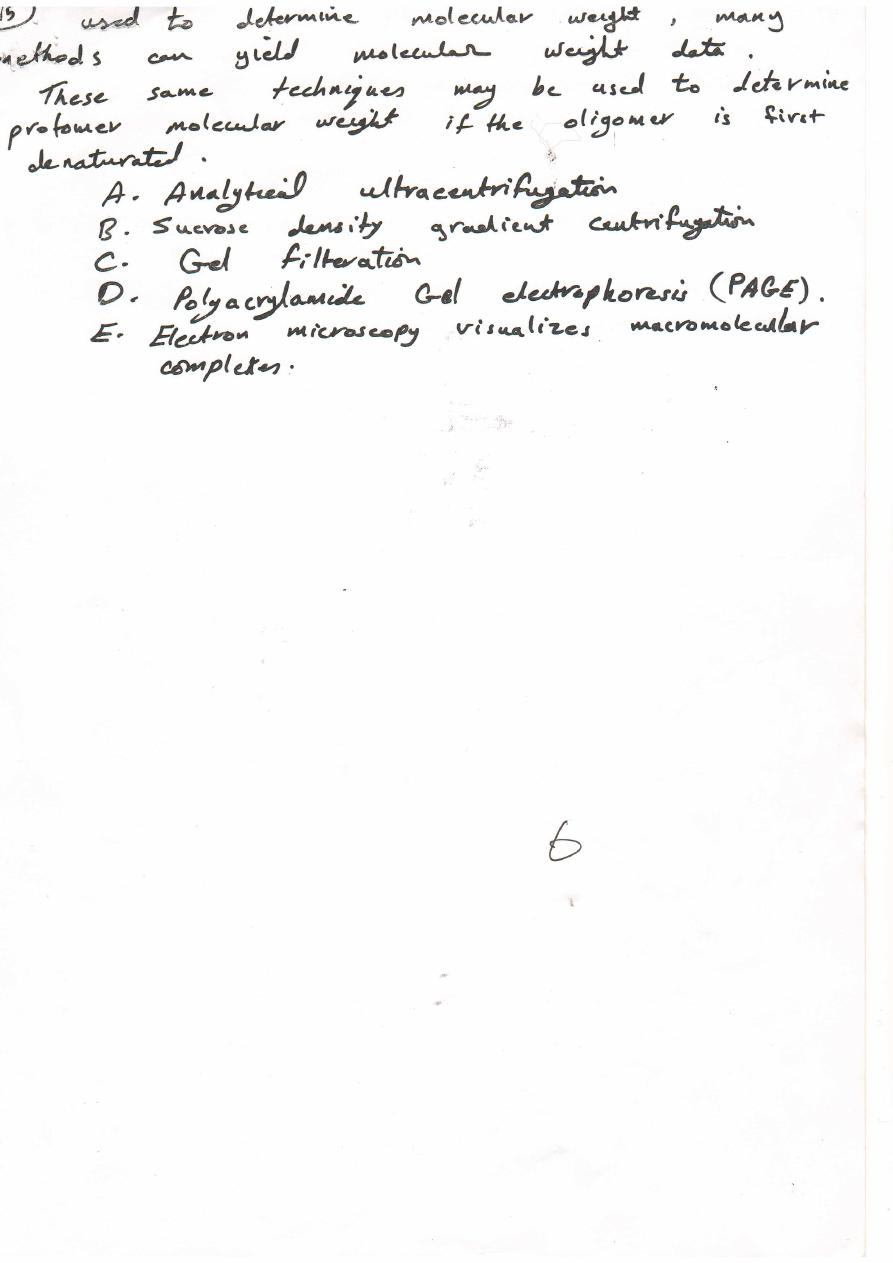 15) used to determine molecular weight, many
methods can yield molecular weight data.
These same techniques may be used to determine
protomer molecular weight if the oligomer is first
denaturated.
A. Analytical ultracentrifugation
B. Sucrose density gradient centrifugation
C. Gel filteration
D. Polyacrylamide Gel electrophoresis (PAGE).
E. Electron microscopy visualizes macromolecular
complexes.
6